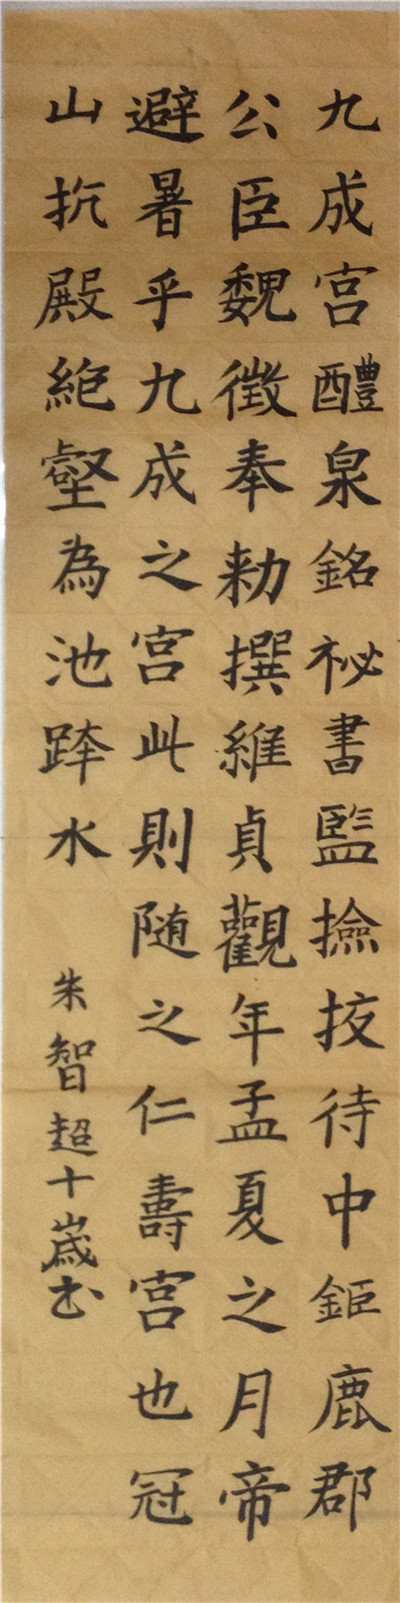 九成宮醴泉銘祕書監撿技待中鉅鹿郡
公臣魏徵奉勅撰維貞觀年孟夏之月帝
避暑乎九成之宮此則随之仁壽宮也冠
山抗殿絕壑為池跨水
朱智超十歲书